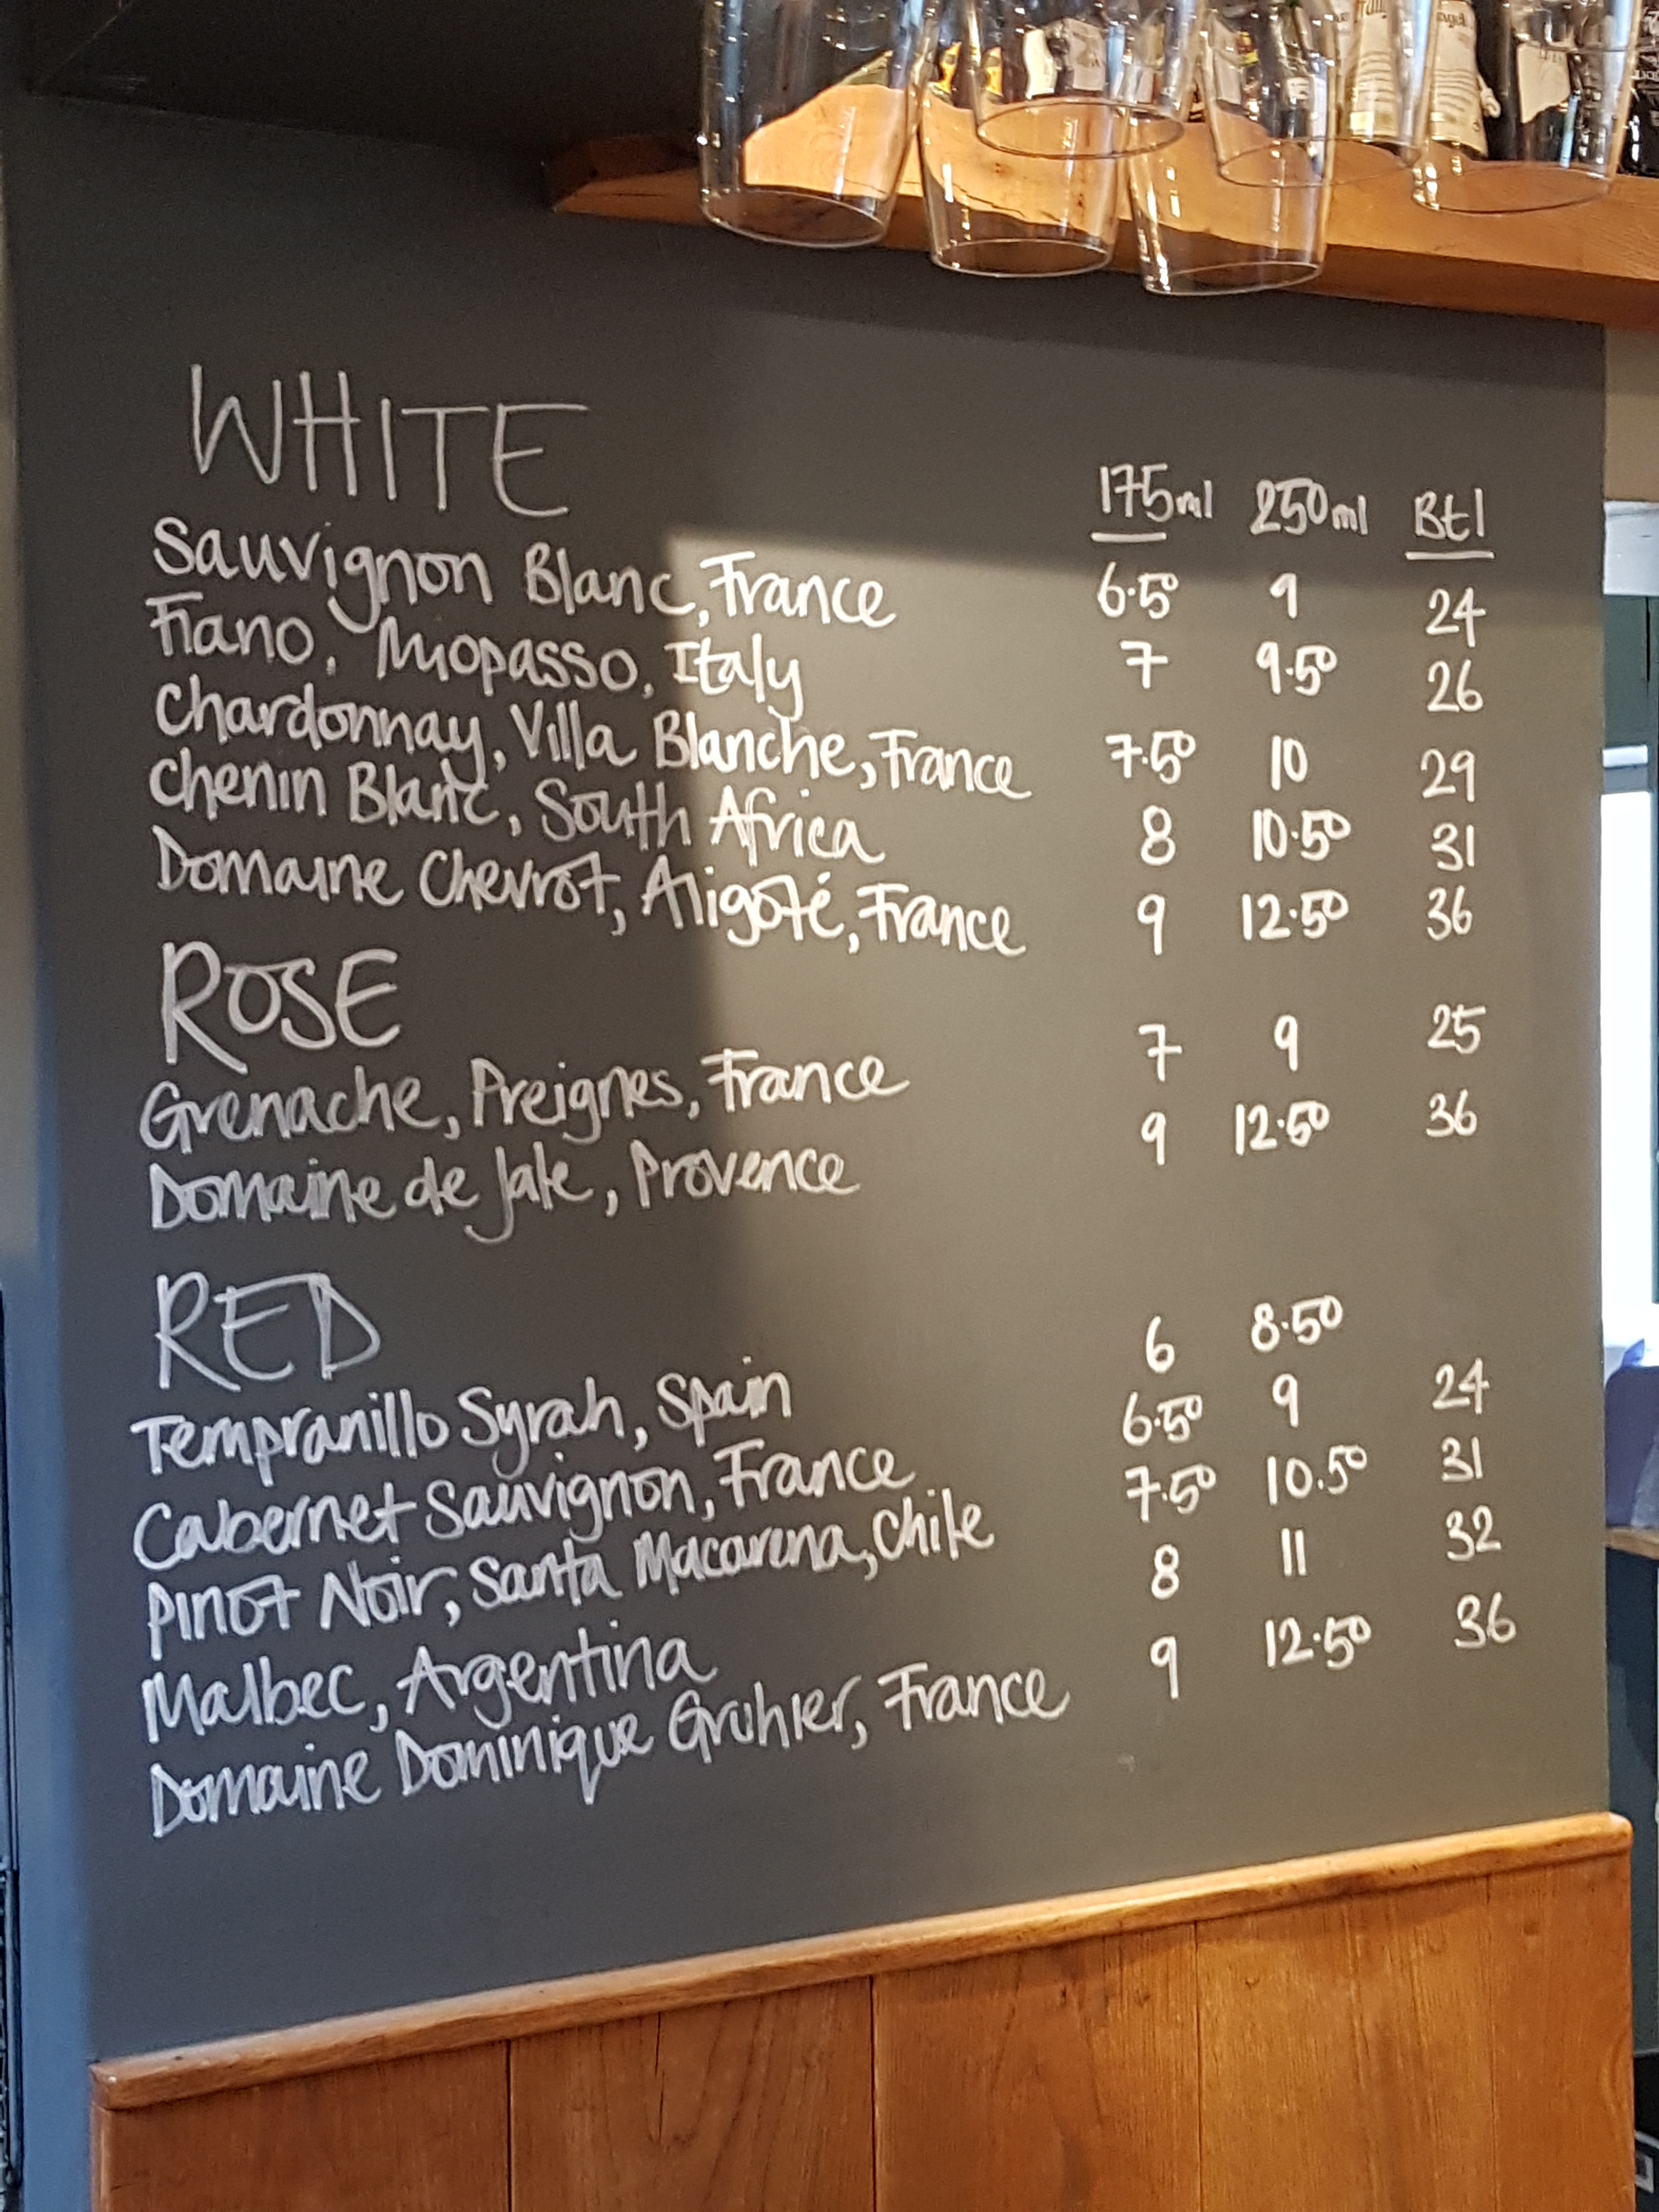 WHITE
175ml 250ml Btl
Sauvignon Blanc, France 6.50 9 24
Fiano, Miopasso, Italy 7 9.50 26
Chardonnay, Villa Blanche, France 7.50 10 29
Chenin Blanc, South Africa 8 10.50 31
Domaine Chevrot, Aligoté, France 9 12.50 36
ROSE
Grenache, Preignes, France 7 9 25
Domaine de Jale, Provence 9 12.50 36
RED
Tempranillo Syrah, Spain 6 8.50
Cabernet Sauvignon, France 6.50 9 24
Pinot Noir, Santa Macarena, Chile 7.50 10.50 31
Malbec, Argentina 8 11 32
Domaine Dominique Gruhier, France 9 12.50 36